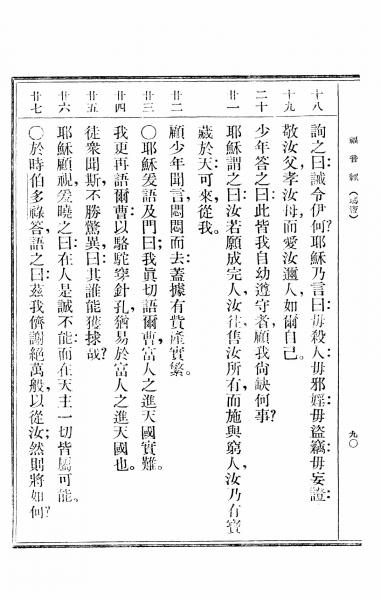 福音經(瑪竇) 九〇
十八 詢之曰:誡令伊何?耶穌乃言曰:毋殺人,毋邪婬,毋盜竊,毋妄證;
十九 敬汝父,孝汝母,而愛汝邇人,如爾自己。
二十 少年答之曰:此皆我自幼遵守者,顧我尙缺何事?
廿一 耶穌謂之曰:汝若願成完人,汝往售汝所有,而施與窮人,汝乃有寶
藏於天,可來從我。
廿二 顧少年聞言,悶悶而去,蓋據有貲產實繁。
廿三 〇耶穌爰語及門曰:我眞切語爾曹,富人之進天國實難。
廿四 我更再語爾曹,以駱駝穿針孔,猶易於富人之進天國也。
廿五 徒衆聞斯,不勝驚異曰:其誰能獲捄哉?
廿六 耶穌顧視,爰曉之曰:在人是誠不能,而在天主一切皆屬可能。
廿七 〇於時伯多祿答語之曰:茲我儕謝絕萬般以從汝,然則將如何?